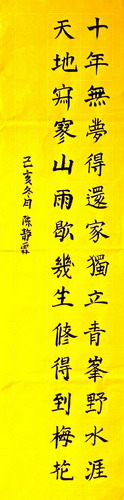 十年無夢得還家獨立青峯野水涯
天地寂寥山雨歇幾生修得到梅花
己亥冬月陈静霖